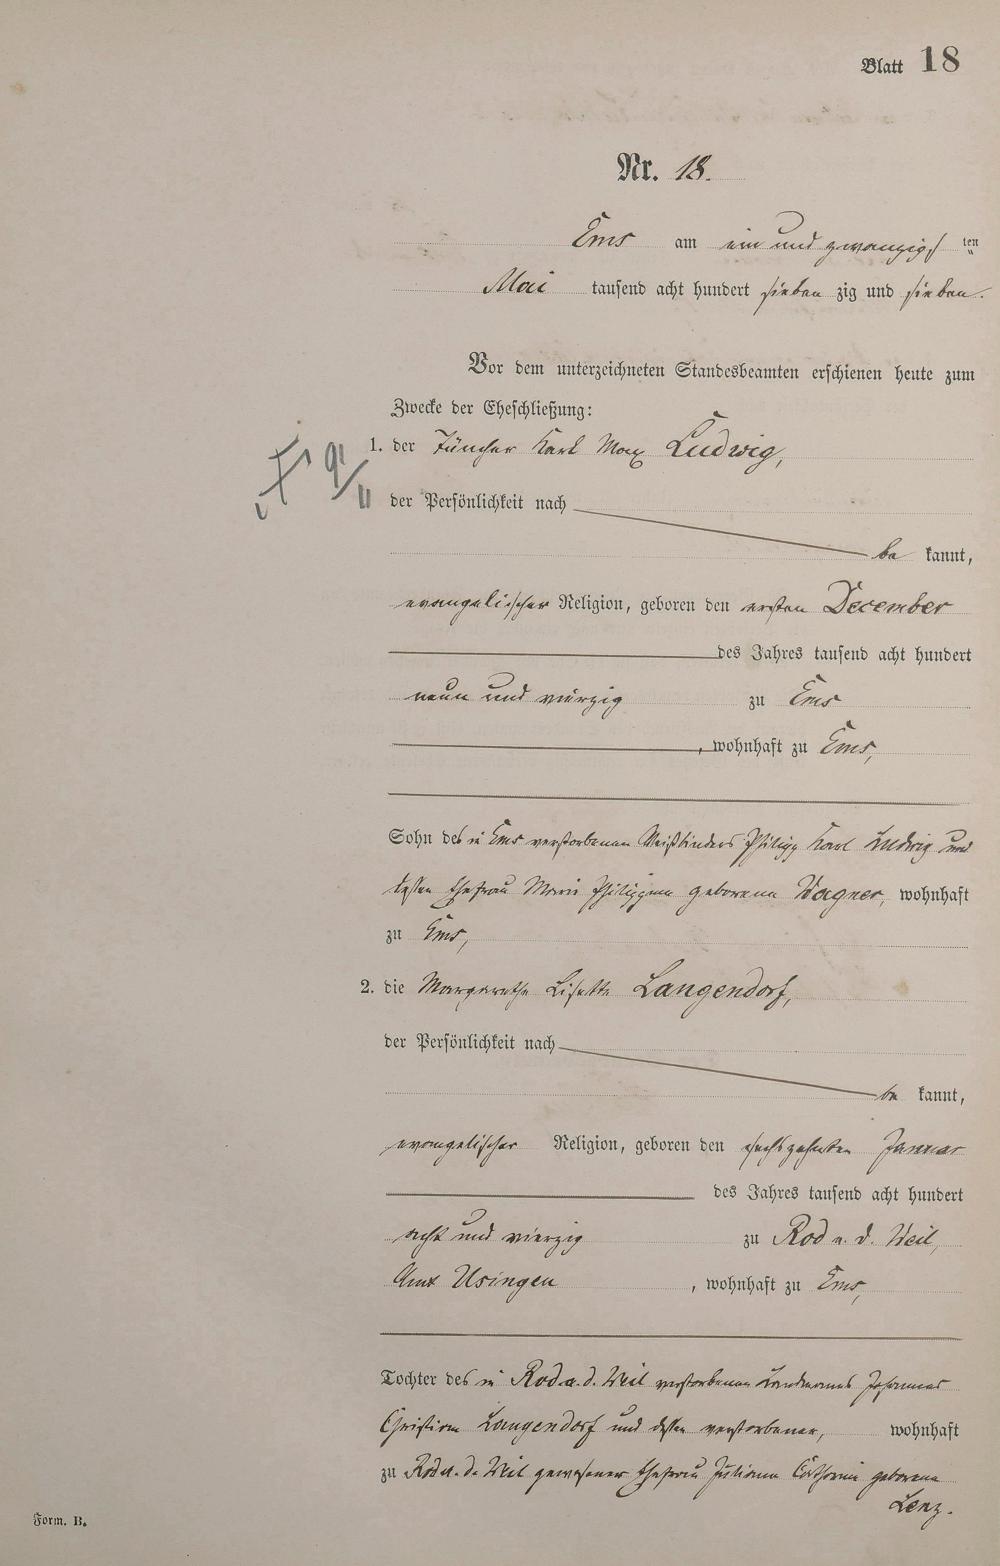 Blatt 18
Nr. 18.
Ems am ein und zwanzigsten
Mai tausend acht hundert sieben zig und sieben.
Vor dem unterzeichneten Standesbeamten erschienen heute zum
Zwecke der Eheschließung:
1. der Tüncher Karl Max Ludwig,
der Persönlichkeit nach
be kannt,
evangelischer Religion, geboren den ersten December
des Jahres tausend acht hundert
neun und vierzig zu Ems
, wohnhaft zu Ems,
Sohn des in Ems verstorbenen Weißbinders Philipp Karl Ludwig und
dessen Ehefrau Marie Philippine geborene Wagner, wohnhaft
zu Ems,
2. die Margarethe Lisette Langendorf,
der Persönlichkeit nach
be kannt,
evangelischer Religion, geboren den sechszehnten Januar
des Jahres tausend acht hundert
acht und vierzig zu Rod a. d. Weil,
Amt Usingen, wohnhaft zu Ems,
Tochter des in Rod a. d. Weil verstorbenen Landmanns Johannes
Christian Langendorf und dessen verstorbener, wohnhaft
zu Rod a. d. Weil gewesener Ehefrau Juliane Catharine geborene
Lenz.
Form. B.